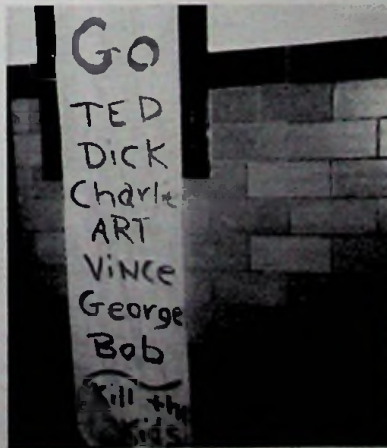 Go
TED
DiCK
Charle
ART
ViNCe
George
Bob
Kill the
Kids